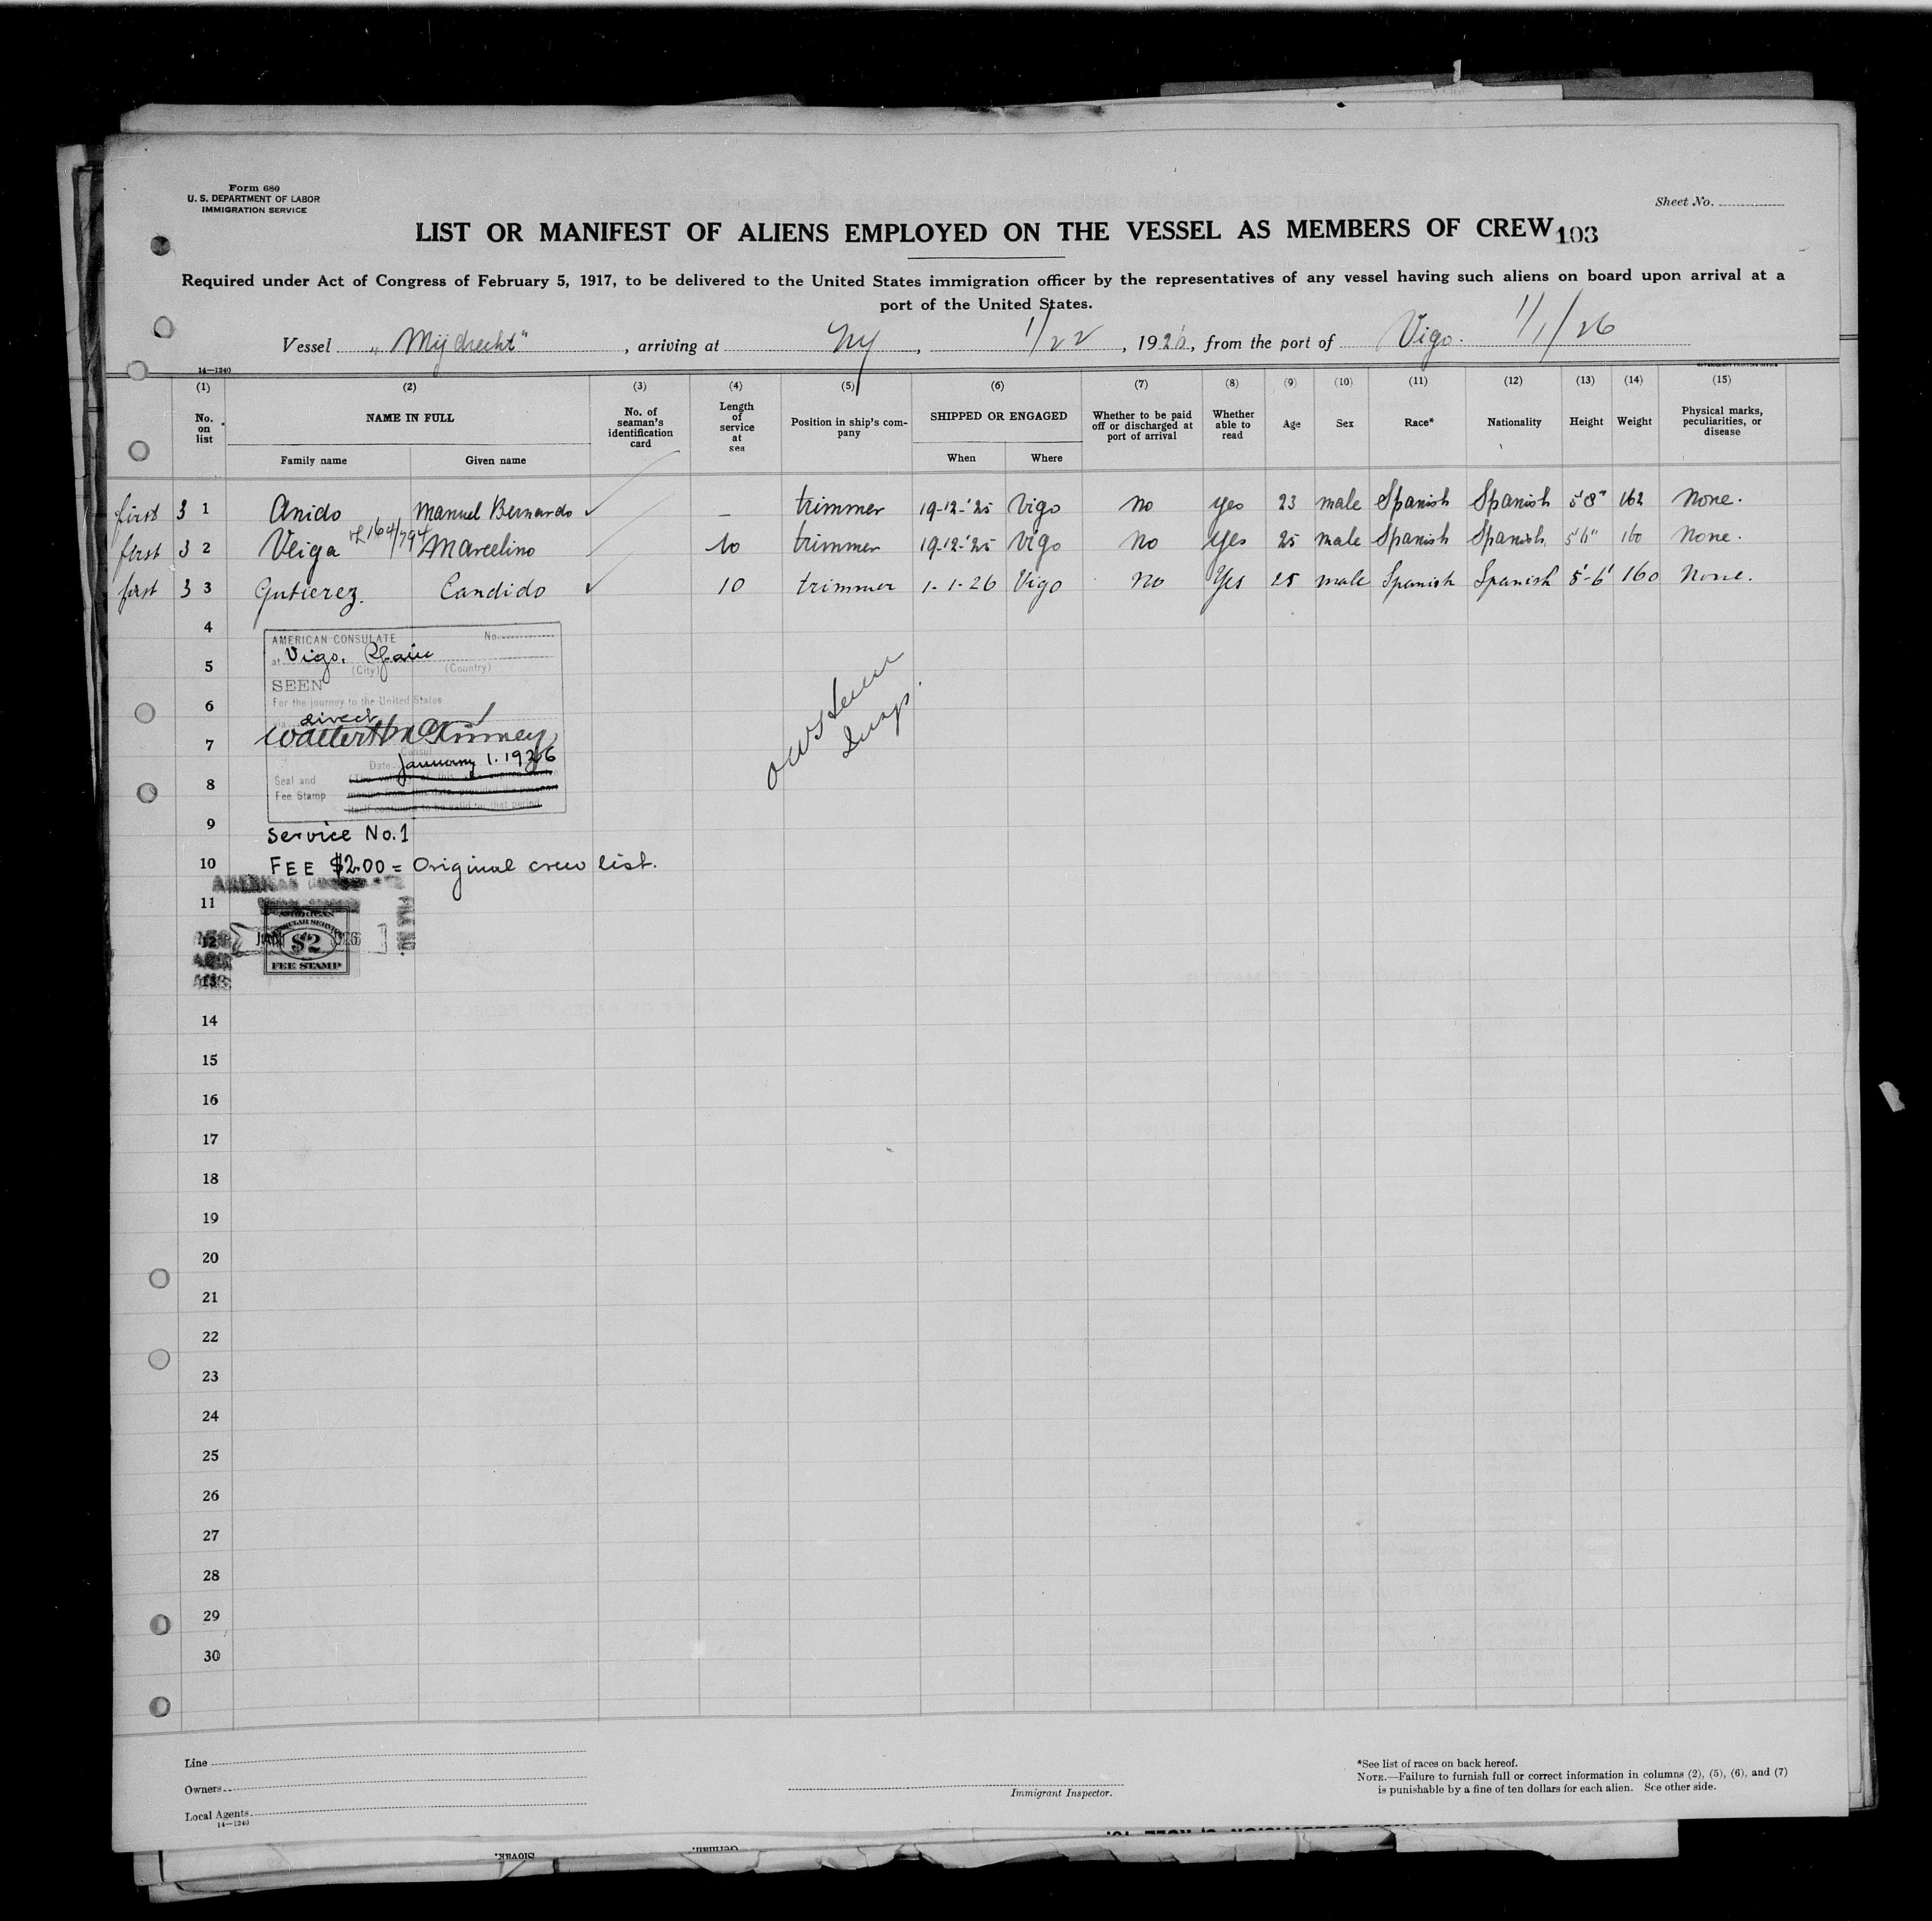 Form 680
U. S. DEPARTMENT OF LABOR
IMMIGRATION SERVICE
Sheet No.
LIST OR MANIFEST OF ALIENS EMPLOYED ON THE VESSEL AS MEMBERS OF CREW 103
Required under Act of Congress of February 5, 1917, to be delivered to the United States immigration officer by the representatives of any vessel having such aliens on board upon arrival at a
port of the United States.
Vessel „Mijdrecht", arriving at NY, 1/22, 1926, from the port of Vigo. 1/1/26
14—1240
(1) (2) (3) (4) (5) (6) (7) (8) (9) (10) (11) (12) (13) (14) (15)
No. on list NAME IN FULL No. of seaman's identification card Length of service at sea Position in ship's company SHIPPED OR ENGAGED Whether to be paid off or discharged at port of arrival Whether able to read Age Sex Race* Nationality Height Weight Physical marks, peculiarities, or disease
Family name Given name When Where
first 3 1 Anido Manuel Bernardo – trimmer 19-12-'25 Vigo no yes 23 male Spanish Spanish 5'8" 162 None.
first 3 2 Veiga 164/794 Marcelino 10 trimmer 19-12-'25 Vigo No yes 25 male Spanish Spanish 5'6" 160 None.
first 3 3 Gutierez. Candido 10 trimmer 1-1-26 Vigo no Yes 25 male Spanish Spanish 5'-6' 160 None.
4
AMERICAN CONSULATE No.
at Vigo, Spain
5
(City) (Country)
SEEN
6
For the journey to the United States
via direct
7
Consul
Date January 1. 1926
8
Seal and
Fee Stamp
9
Service No. 1
10
FEE $2.00 = Original crew list.
11
AMERICAN
CONSULAR SERVICE
12
$2
FEE STAMP
13
14
15
16
17
18
19
20
21
22
23
24
25
26
27
28
29
30
Line
Owners
Local Agents
14—1240
Immigrant Inspector.
*See list of races on back hereof.
NOTE.—Failure to furnish full or correct information in columns (2), (5), (6), and (7)
is punishable by a fine of ten dollars for each alien. See other side.